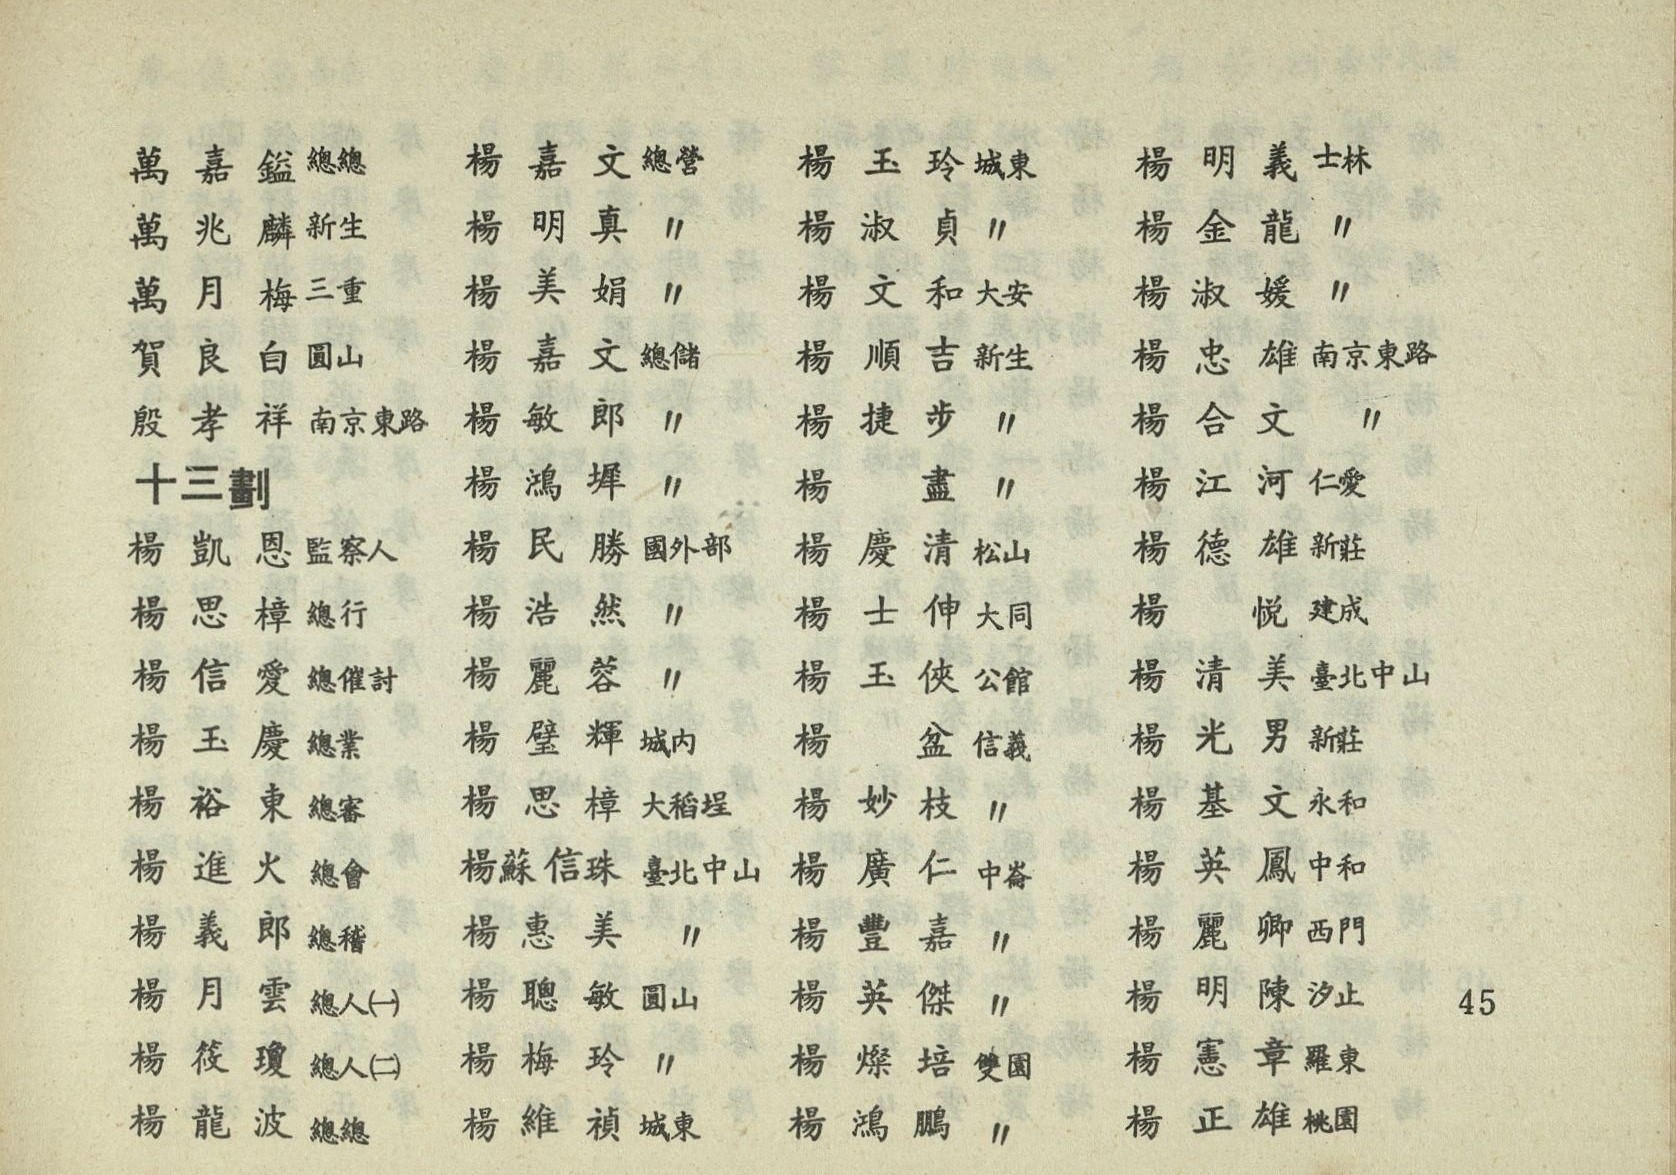 萬嘉鎰 總總
萬兆麟 新生
萬月梅 三重
賀良白 圓山
殷孝祥 南京東路
十三劃
楊凱恩 監察人
楊思樟 總行
楊信愛 總催討
楊玉慶 總業
楊裕東 總審
楊進火 總會
楊義郎 總稽
楊月雲 總人㈠
楊筱瓊 總人㈡
楊龍波 總總
楊嘉文 總營
楊明真 〃
楊美娟 〃
楊嘉文 總儲
楊敏郎 〃
楊鴻墀 〃
楊民勝 國外部
楊浩然 〃
楊麗蓉 〃
楊璧輝 城內
楊思樟 大稻埕
楊蘇信珠 臺北中山
楊惠美 〃
楊聰敏 圓山
楊梅玲 〃
楊維禎 城東
楊玉玲 城東
楊淑貞 〃
楊文和 大安
楊順吉 新生
楊捷步 〃
楊盡 〃
楊慶清 松山
楊士伸 大同
楊玉俠 公館
楊盆 信義
楊妙枝 〃
楊廣仁 中崙
楊豐嘉 〃
楊英傑 〃
楊燦培 雙園
楊鴻鵬 〃
楊明義 士林
楊金龍 〃
楊淑媛 〃
楊忠雄 南京東路
楊合文 〃
楊江河 仁愛
楊德雄 新莊
楊悅 建成
楊清美 臺北中山
楊光男 新莊
楊基文 永和
楊英鳳 中和
楊麗卿 西門
楊明陳 汐止
楊憲章 羅東
楊正雄 桃園
45